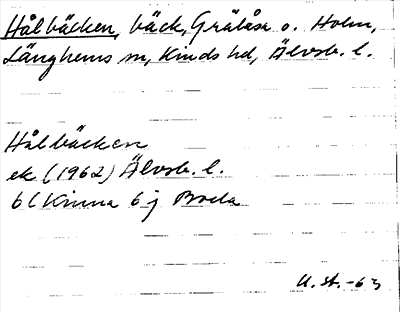 Hålbäcken, bäck, Grålåsa o. Holm,
Länghems sn, Kinds hd, Älvsb. l.
Hålbäcken
ek (1962) Älvsb. l.
6 Kinna 6 j
U. st. -63